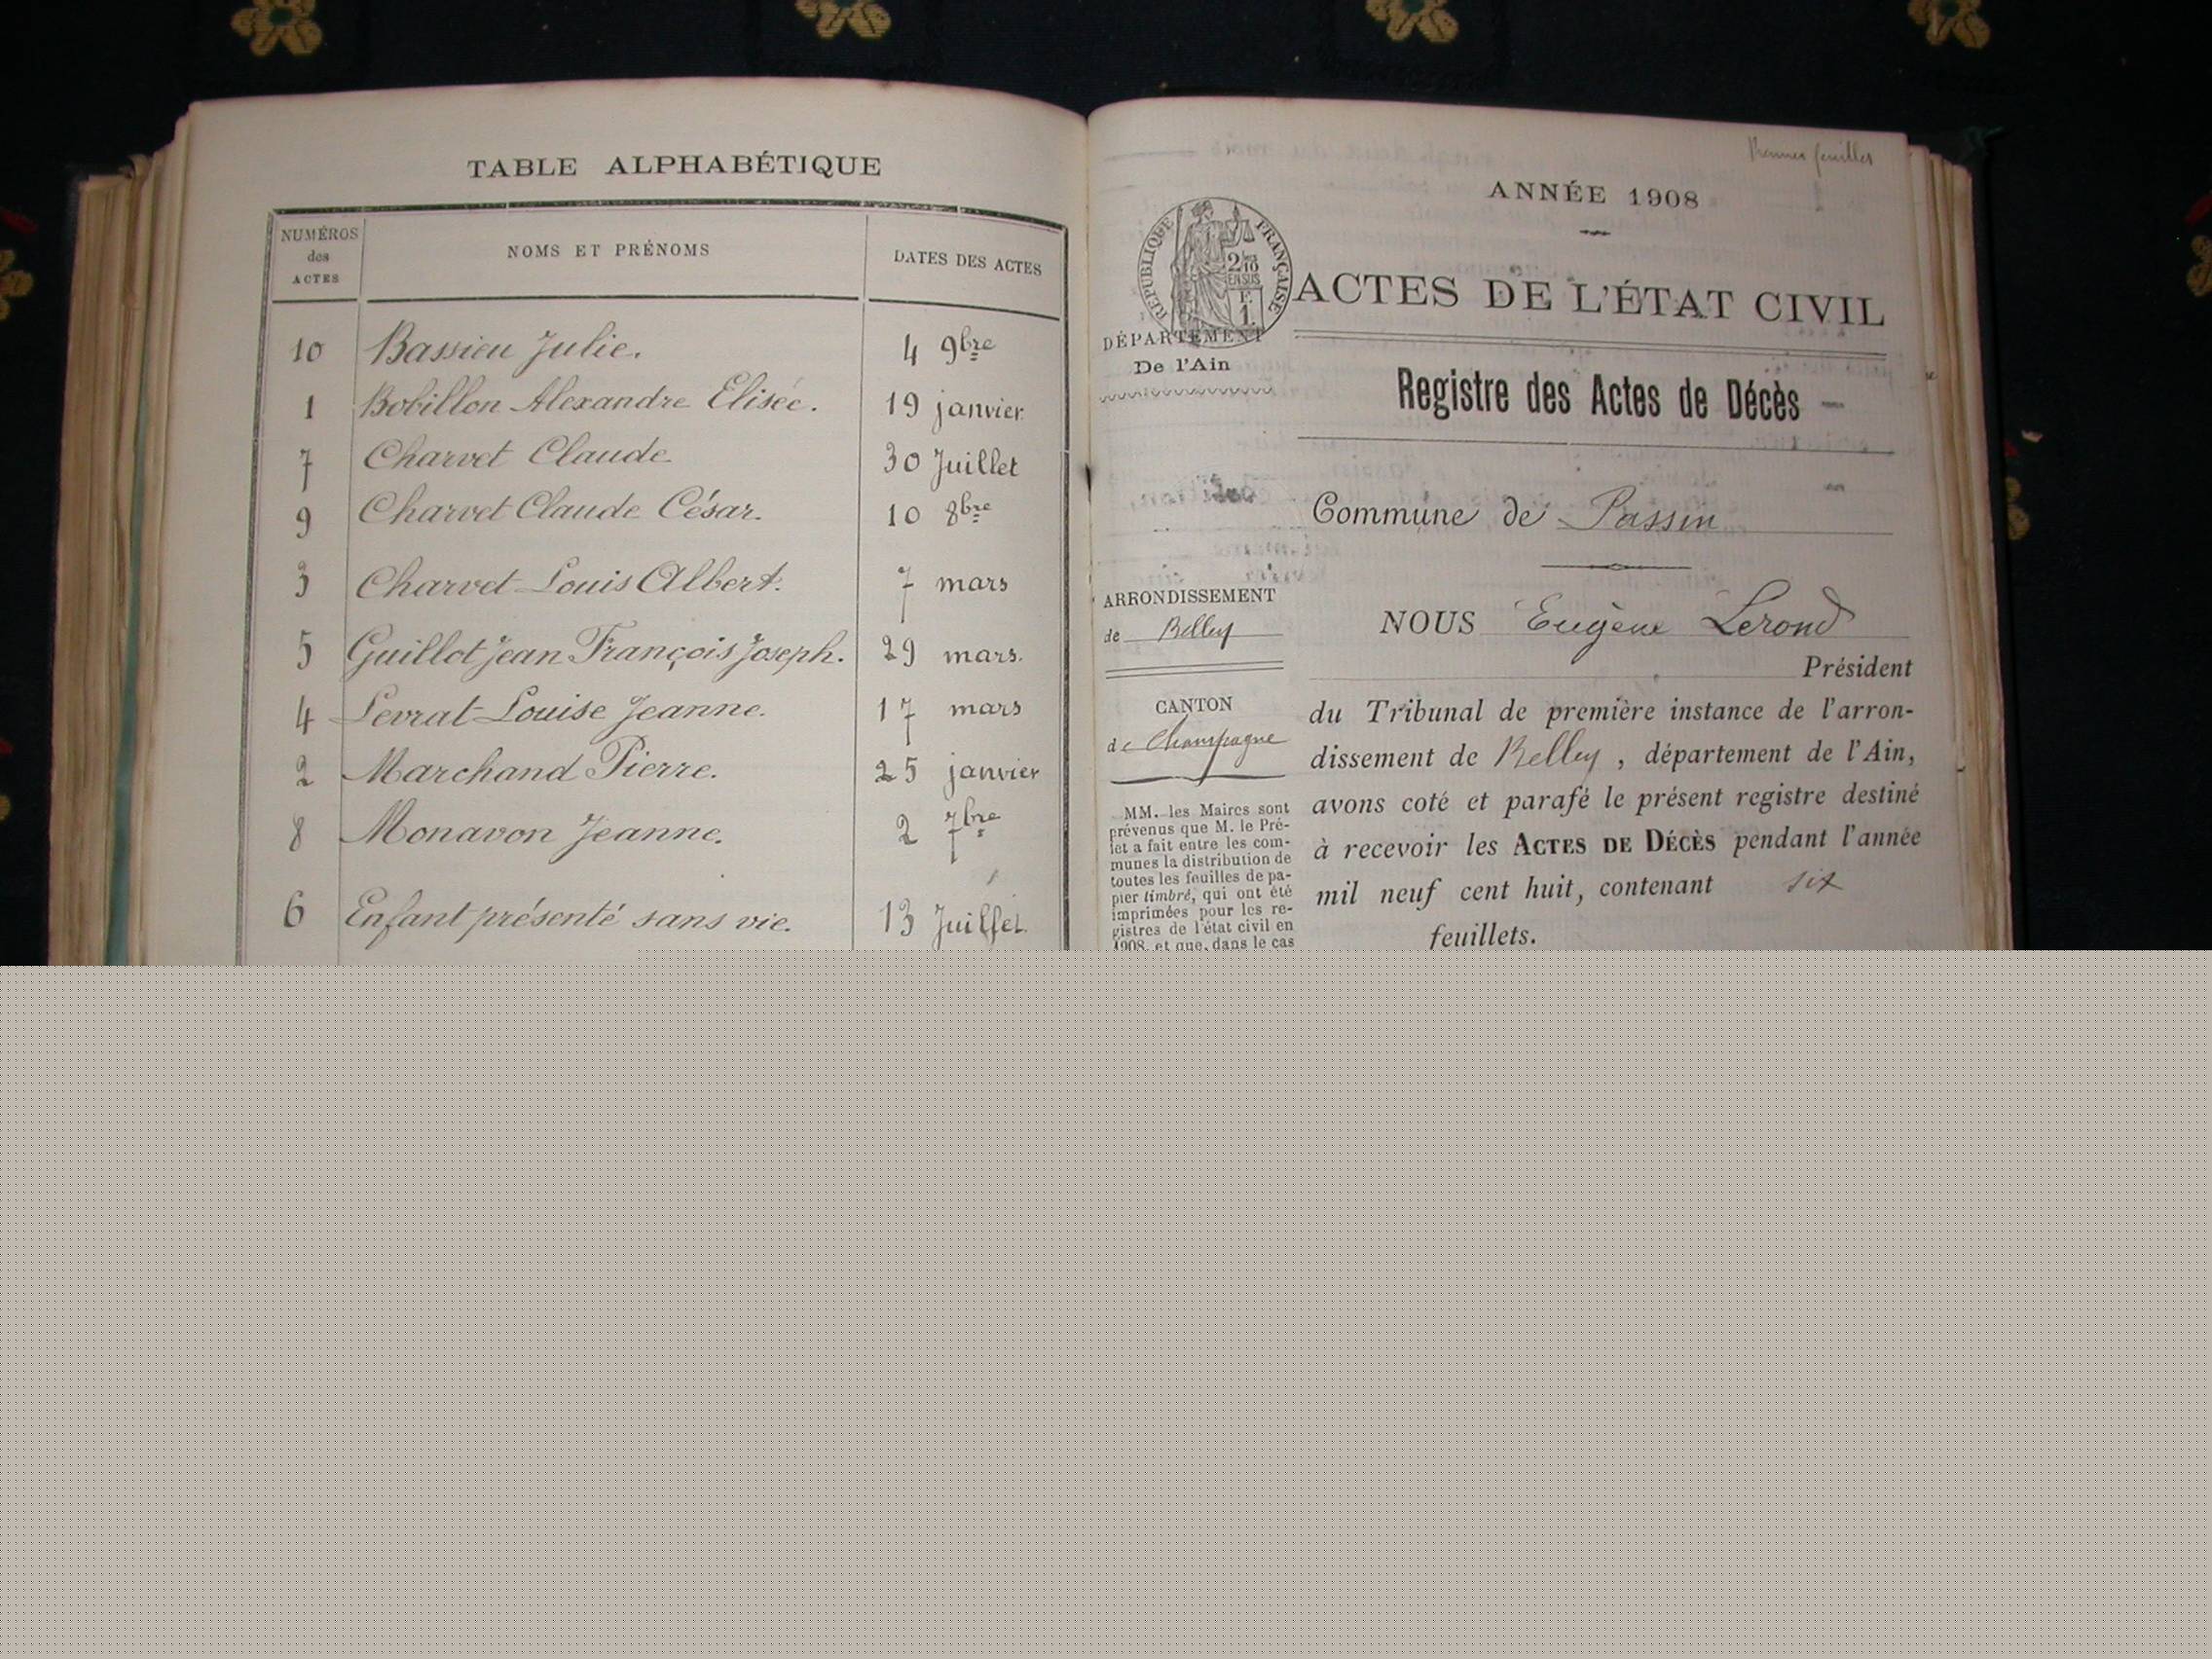 TABLE ALPHABÉTIQUE
NUMÉROS des ACTES NOMS ET PRÉNOMS DATES DES ACTES
10 Bassieu Julie. 4 9bre
1 Bobillon Alexandre Elisée. 19 janvier
7 Charvet Claude 30 Juillet
9 Charvet Claude César. 10 8bre
3 Charvet Louis Albert. 7 mars
5 Guillot Jean François Joseph. 29 mars.
4 Levrat Louise Jeanne. 17 mars
2 Marchand Pierre. 25 janvier
8 Monavon Jeanne. 2 7bre
6 Enfant présenté sans vie. 13 Juillet.
feuilles
ANNÉE 1908
RÉPUBLIQUE FRANÇAISE
2/10
EN SUS
F.
1.
DÉPARTEMENT
De l'Ain
ACTES DE L'ÉTAT CIVIL
Registre des Actes de Décès
Commune de Passin
ARRONDISSEMENT
de Belley
CANTON
de Champagne
MM. les Maires sont
prévenus que M. le Pré-
fet a fait entre les com-
munes la distribution de
toutes les feuilles de pa-
pier timbré, qui ont été
imprimées pour les re-
gistres de l'état civil en
1908, et que, dans le cas
NOUS Eugène Lerond
Président
du Tribunal de première instance de l'arron-
dissement de Belley, département de l'Ain,
avons coté et parafé le présent registre destiné
à recevoir les ACTES DE DÉCÈS pendant l'année
mil neuf cent huit, contenant six
feuillets.